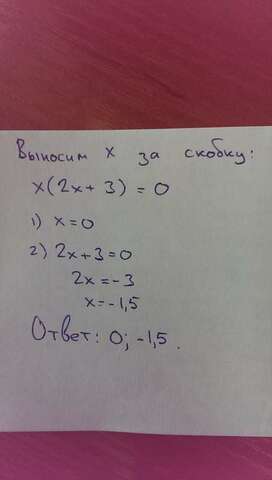 Выносим x за скобку:
x(2x+3)=0
1) x=0
2) 2x+3=0
2x=-3
x=-1,5
Ответ: 0; -1,5.